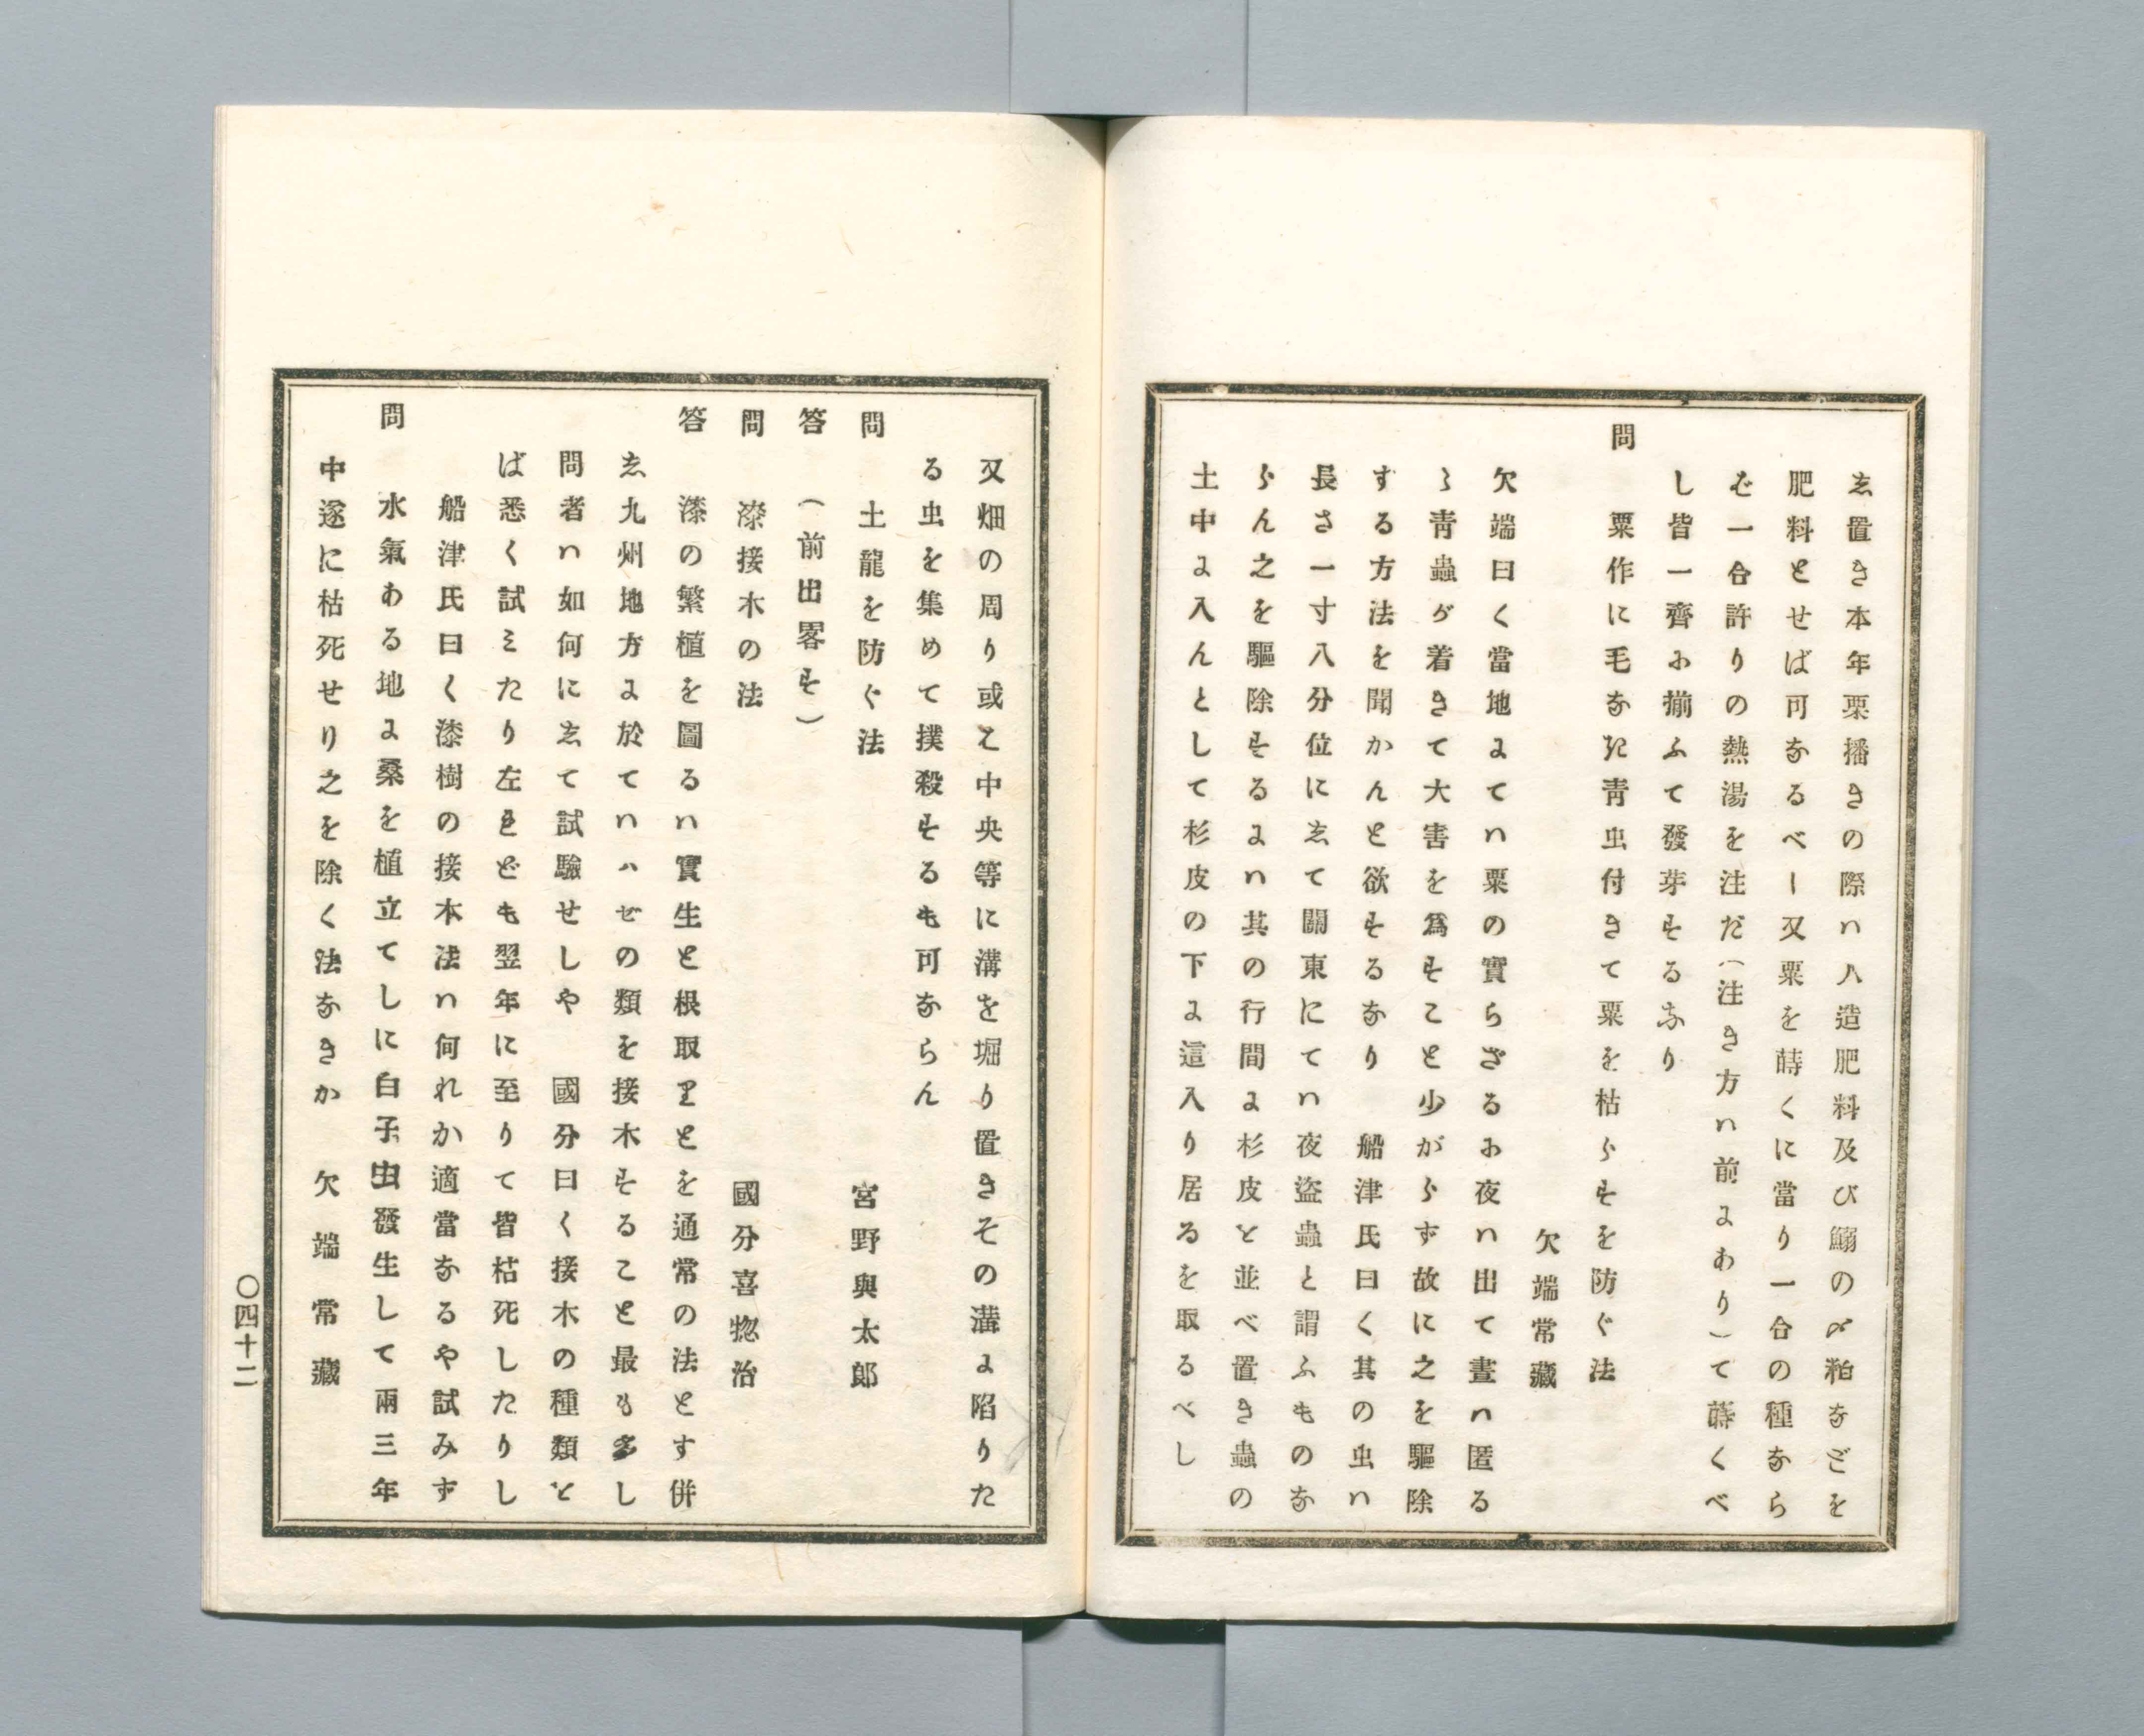 ゑ置き本年粟播きの際ハ人造肥料及び鰯の〆粕なざを
肥料とせば可なるべし又粟を蒔くに當り一合の種なら
ば一合許りの熱湯を注だ(注き方ハ前よあり)て蒔くべ
し皆一齊お揃ふて發芽するなり
問　粟作に毛なき青虫付きて粟を枯らすを防ぐ法
欠端常藏
欠端曰く當地よてハ粟の實らざるお夜ハ出て晝ハ匿る
ゝ青蟲が着きて大害を爲すこと少がらず故に之を驅除
する方法を聞かんと欲するなり　船津氏曰く其の虫ハ
長さ一寸八分位にゑて關東にてハ夜盜蟲と謂ふものな
らん之を驅除するよハ其の行間よ杉皮を並べ置き蟲の
土中よ入んとして杉皮の下よ這入り居るを取るべし
又畑の周り或と中央等に溝を堀り置きその溝よ陷りた
る虫を集めて撲殺するも可ならん
問　土龍を防ぐ法　宮野與太郎
答　(前出畧す)
問　漆接木の法　國分喜惣治
答　漆の繁植を圖るハ實生と根取りとを通常の法とす併
ゑ九州地方よ於てハハぜの類を接木することと最も多し
問者ハ如何にゑて試驗せしや　國分曰く接木の種類を
ば悉く試ミたり左れども翌年に至りて皆枯死したりし
船津氏曰く漆樹の接木法ハ何れか適當なるや試みず
問　水氣ある地よ桑を植立てしに白子虫發生して兩三年
中遂に枯死せり之を除く法なきか　欠端常藏
〇四十二